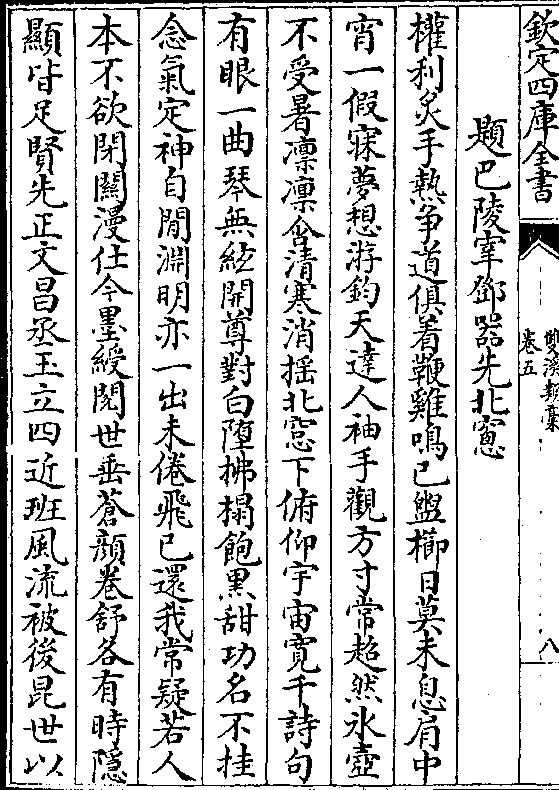 欽定四庫全書
雙溪類稾
卷五
八
題巴陵宰鄧器先北窻
權利炙手熱争道俱着鞭雞鳴已盥櫛日莫未息肩中
宵一假寐夢想游鈞天達人袖手觀方寸常超然氷壺
不受暑凛凛含清寒消揺北窓下俯仰宇宙寛千詩句
有眼一曲琴無絃開尊對白墮拂榻飽黑甜功名不挂
念氣定神自閒淵明亦一出未倦飛已還我常疑若人
本不欲閉關漫仕今墨綬閱世垂蒼顔卷舒各有時隱
顯皆足賢先正文昌丞玉立四近班風流被後昆世以